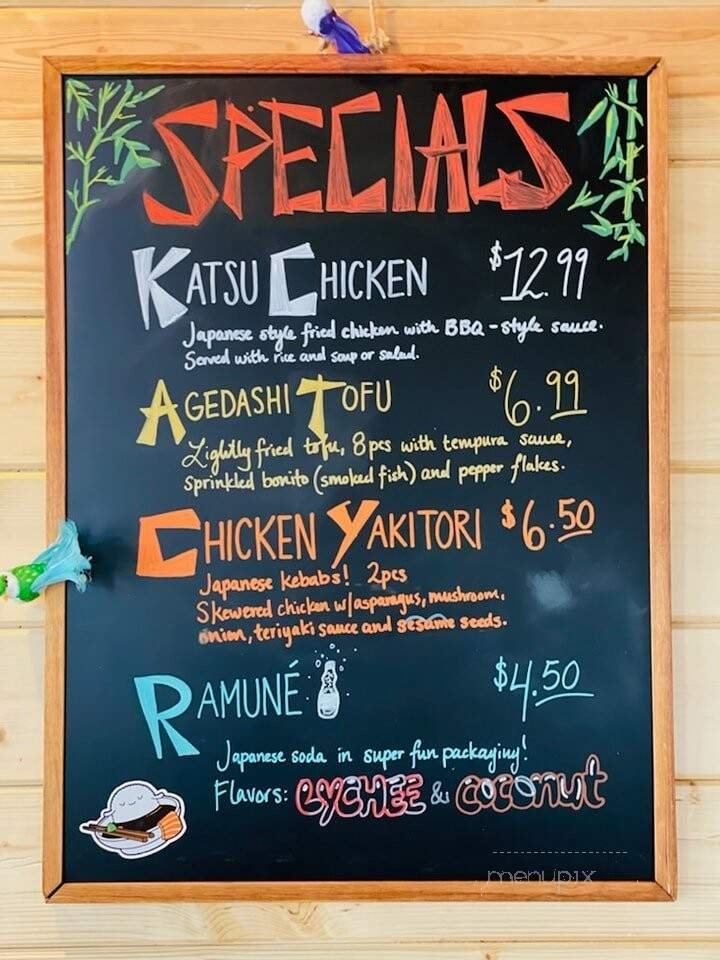 SPECIALS
KATSU CHICKEN $12.99
Japanese style fried chicken with BBQ-style sauce.
Served with rice and soup or salad.
AGEDASHI TOFU $6.99
Lightly fried tofu, 8pcs with tempura sauce,
sprinkled bonito (smoked fish) and pepper flakes.
CHICKEN YAKITORI $6.50
Japanese kebabs! 2pcs
Skewered chicken w/asparagus, mushroom,
onion, teriyaki sauce and sesame seeds.
RAMUNÉ $4.50
Japanese soda in super fun packaging!
Flavors: LYCHEE & coconut
menupix